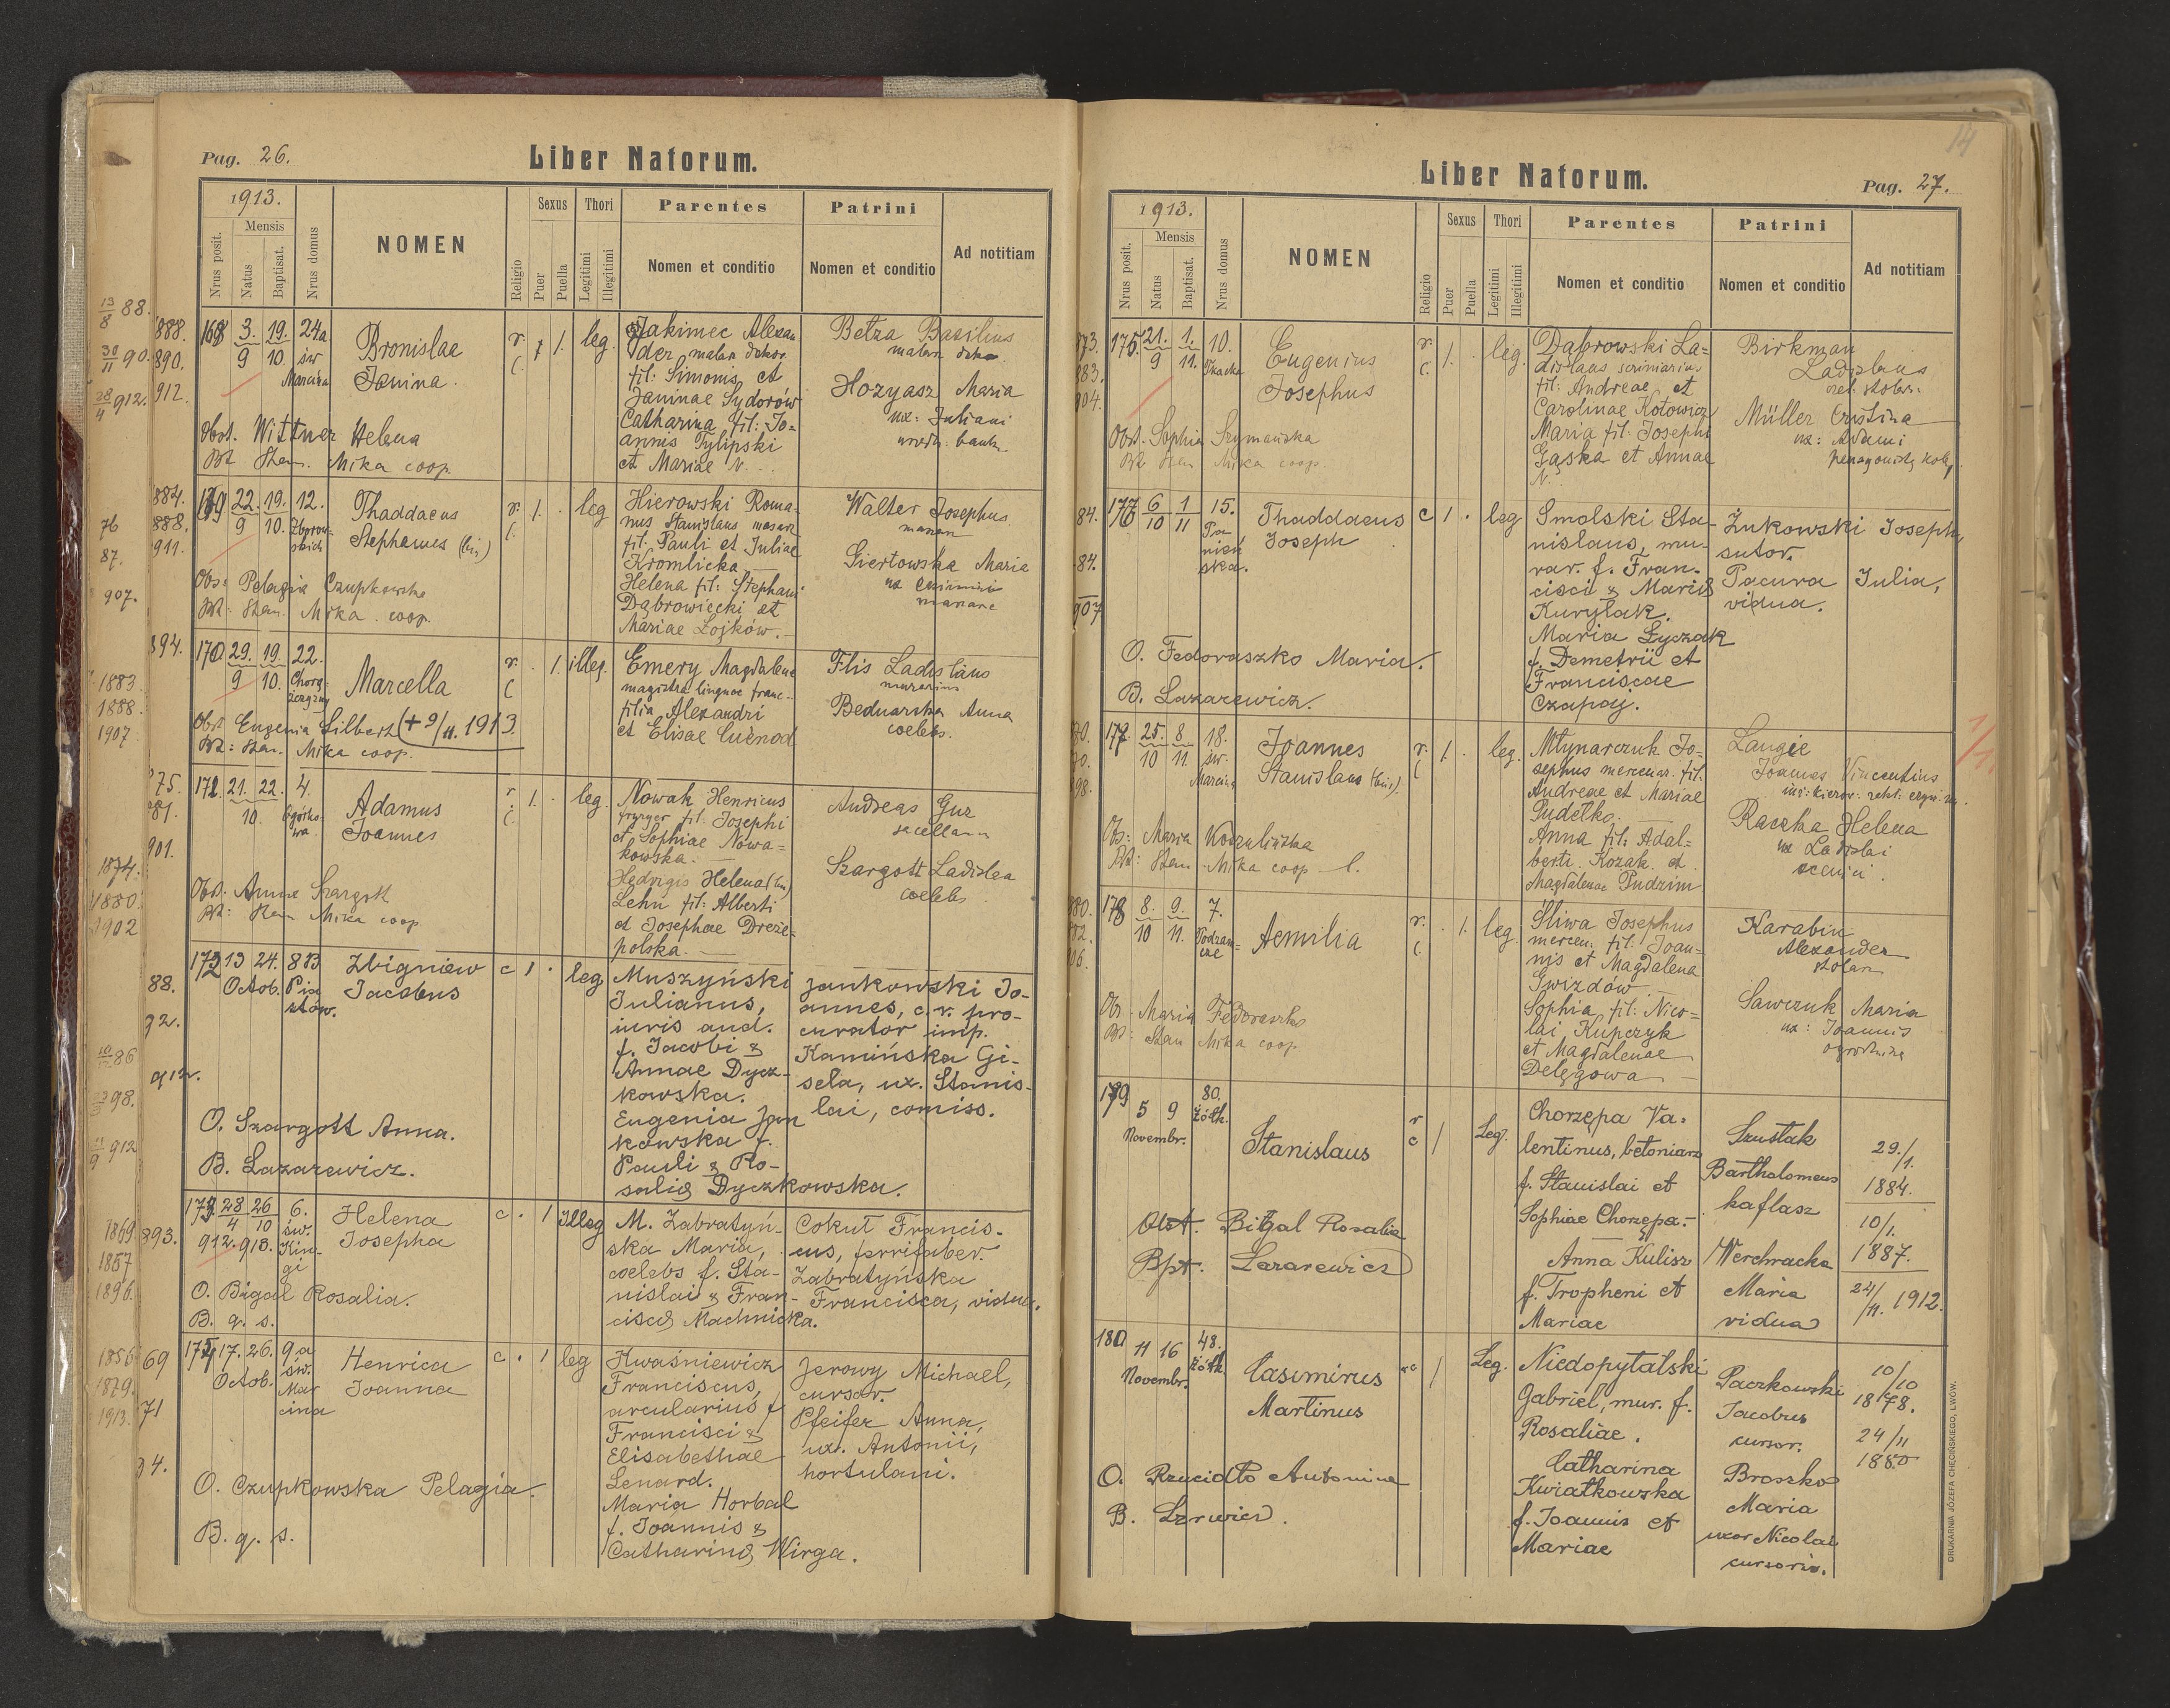 Pag. 26.
Liber Natorum.
1913.
Nrus posit.
Mensis
Natus
Baptisat.
Nrus domus
NOMEN
Religio
Sexus
Puer
Puella
Thori
Legitimi
Illegitimi
Parentes
Nomen et conditio
Patrini
Nomen et conditio
Ad notitiam
168 3. 19. 24a
9 10. św
Marcina
Bronislaa
Janina.
r. 1. leg.
c.
Jakimec Alexan
der malar dekor.
fil: Simonis et
Janinae Sydorów
Catharina fil: Jo=
annis Pylipski
et Mariae N.
Betza Basilius
malar deko.
Hozyasz Maria
ux: Juliani
urzędn. bank.
Obst. Wittner Helena
Bt. Stan. Mika coop.
169 22. 19. 12.
9 10.
Thaddaeus
Stephanus (bin)
r. 1. leg
c.
Hierowski Roma=
nus Stanislaus
fil: Pauli et Juliae
Kromlicka
Helena fil: Stephani
Dąbrowiecki et
Mariae Łojków.
Walter Josephus
Siertowska Maria
Obs: Pelagia Czupkowska
Bt: Stan. Mika. coop.
170 29. 19. 22.
9 10. Chorą=
żczyzny
Marcella
r. 1. illeg.
c
Emery Magdalena
magistra linguae franc.
filia Alexandri
et Elisae Cuénod
Flis Ladislaus
murarius
Bednarska Anna
coelebs.
Obst. Eugenia Silbert (+ 9/11. 1913.
Bt: Stan. Mika coop.
171. 21. 22. 4.
10. Ogórko=
wa
Adamus
Joannes
r. 1. leg.
c.
Nowak Henricus
fryzyer fil. Josephi
et Sophiae Nowa=
kowska.
Hedvigis Helena (bin)
Lehn fil: Alberti
et Josephae Dreze=
polska.
Andreas Gur
sacellan
Szargott Ladislea
coelebs
Obst. Anna Szargott
Bt: Stan Mika coop
172 13 24. 8B
Octob. Pia
stów.
Zbigniew
Jacobus
c 1 . leg
Muszyński
Julianus,
iuris aud.
f. Jacobi &
Annae Dycz-
kowska.
Eugenia Jan
kowska f.
Pauli & Ro-
salię Dyczkowska.
Jankowski Jo-
annes, c. r. pro-
curator imp.
Kamińska Gi-
sela, ux. Stanis-
lai, comiss.
O. Szargott Anna.
B. Lazarewicz.
173. 28 26 6.
4 10 św.
912. 913. Kin-
gi
Helena
Josepha
c. . 1 Illeg
M. Zabratyń-
ska Maria,
coelebs f. Sta-
nislai & Fran-
ciscę Machnicka.
Cokut Francis-
cus, ferrifaber.
Zabratyńska
Francisca, vidua.
O. Bigal Rosalia.
B. q. s.
174 17. 26. 9a
Octob. św.
Mar
cina
Henrica
Joanna
c . 1 leg
Kwaśniewicz
Franciscus,
arcularius f
Francisci &
Elisabethae
Lenard.
Maria Horbal
f. Joannis &
Catharinę Wirga.
Jerowy Michael,
cursor.
Pfeifer Anna,
ux. Antonii,
hortulani.
O. Czupkowska Pelagia.
B. q. s.
Liber Natorum.
Pag. 27.
1913.
Nrus posit.
Mensis
Natus
Baptisat.
Nrus domus
NOMEN
Religio
Sexus
Puer
Puella
Thori
Legitimi
Illegitimi
Parentes
Nomen et conditio
Patrini
Nomen et conditio
Ad notitiam
175 21. 1. 10.
9 11. Tkacka
Eugenius
Josephus
r. 1. leg.
c.
Dąbrowski La=
dislaus scriniarius
fil: Andreae et
Carolinae Kotowicz
Maria fil: Josephi
Gąska et Annae
N.
Birkman
Ladislaus
Müller Cristina
ux: Adami
Obst. Sophia Szymańska
Bt. Stan Mika coop.
176 6 1 15.
10 11 Pa
nień
ska.
Thaddaeus
Joseph
c 1 . leg
Smolski Sta-
nislaus, mu-
rar. f. Fran-
cisci & Marię
Kurylak.
Maria Łyczak
f. Demetrii et
Franciscae
Czapaj.
Żukowski Joseph,
sutor.
Pacura Julia,
vidua.
O. Fedoraszko Maria.
B. Lazarewicz.
177 25. 8 18.
10 11. św.
Marcina
Joannes
Stanislaus (bin).
r. 1. leg.
c
Młynarczuk Jo=
sephus mercenar. fil.
Andreae et Mariae
Pudełko.
Anna fil: Adal=
berti Kozak et
Magdalenae Pudzim
Langie
Joannes Vincentius
Raczka Helena
ux Ladislai
Ob: Maria
Bt: Stan Mika coop
178 8. 9. 7.
10 11. Podzam=
cze
Aemilia
r. . 1. leg.
c.
Śliwa Josephus
mercen. fil: Joan=
nis et Magdalena
Gwizdów
Sophia fil: Nico=
lai Kupczyk
et Magdalenae
Delęgowa
Karabin
Alexander
stolarz
Sawczuk Maria
ux: Joannis
ogrodnika
Obs. Maria Fedoraszko
Bt: Stan Mika coop
179 5 9 80.
Novembr. Żółk.
Stanislaus
r
c 1 Leg.
Chorzępa Va=
lentinus, betoniarz
f. Stanislai et
Sophiae Chorzępa.
Anna Kulisz
f. Tropheni et
Mariae
Szustak
Bartholomeus
kaflarz
Werchracka
Maria
vidua
29./1.
1884.
10/1.
1887.
24/11. 1912.
Obst. Bigal Rosalia
Bpt. Lazarewicz
180 11 16 48.
Novembr. Żółk.
Casimirus
Martinus
rc 1 Leg.
Niedopytalski
Gabriel, mur. f.
Rosaliae.
Catharina
Kwiatkowska
f. Joannis et
Mariae
Paczkowski
Jacobus
cursor.
Broszko
Maria
uxor Nicolai
cursoris.
10/10
1878.
24/11
1880
O. Rzucidło Antonina
B.
DRUKARNIA JÓZEFA CHĘCIŃSKIEGO, LWÓW.